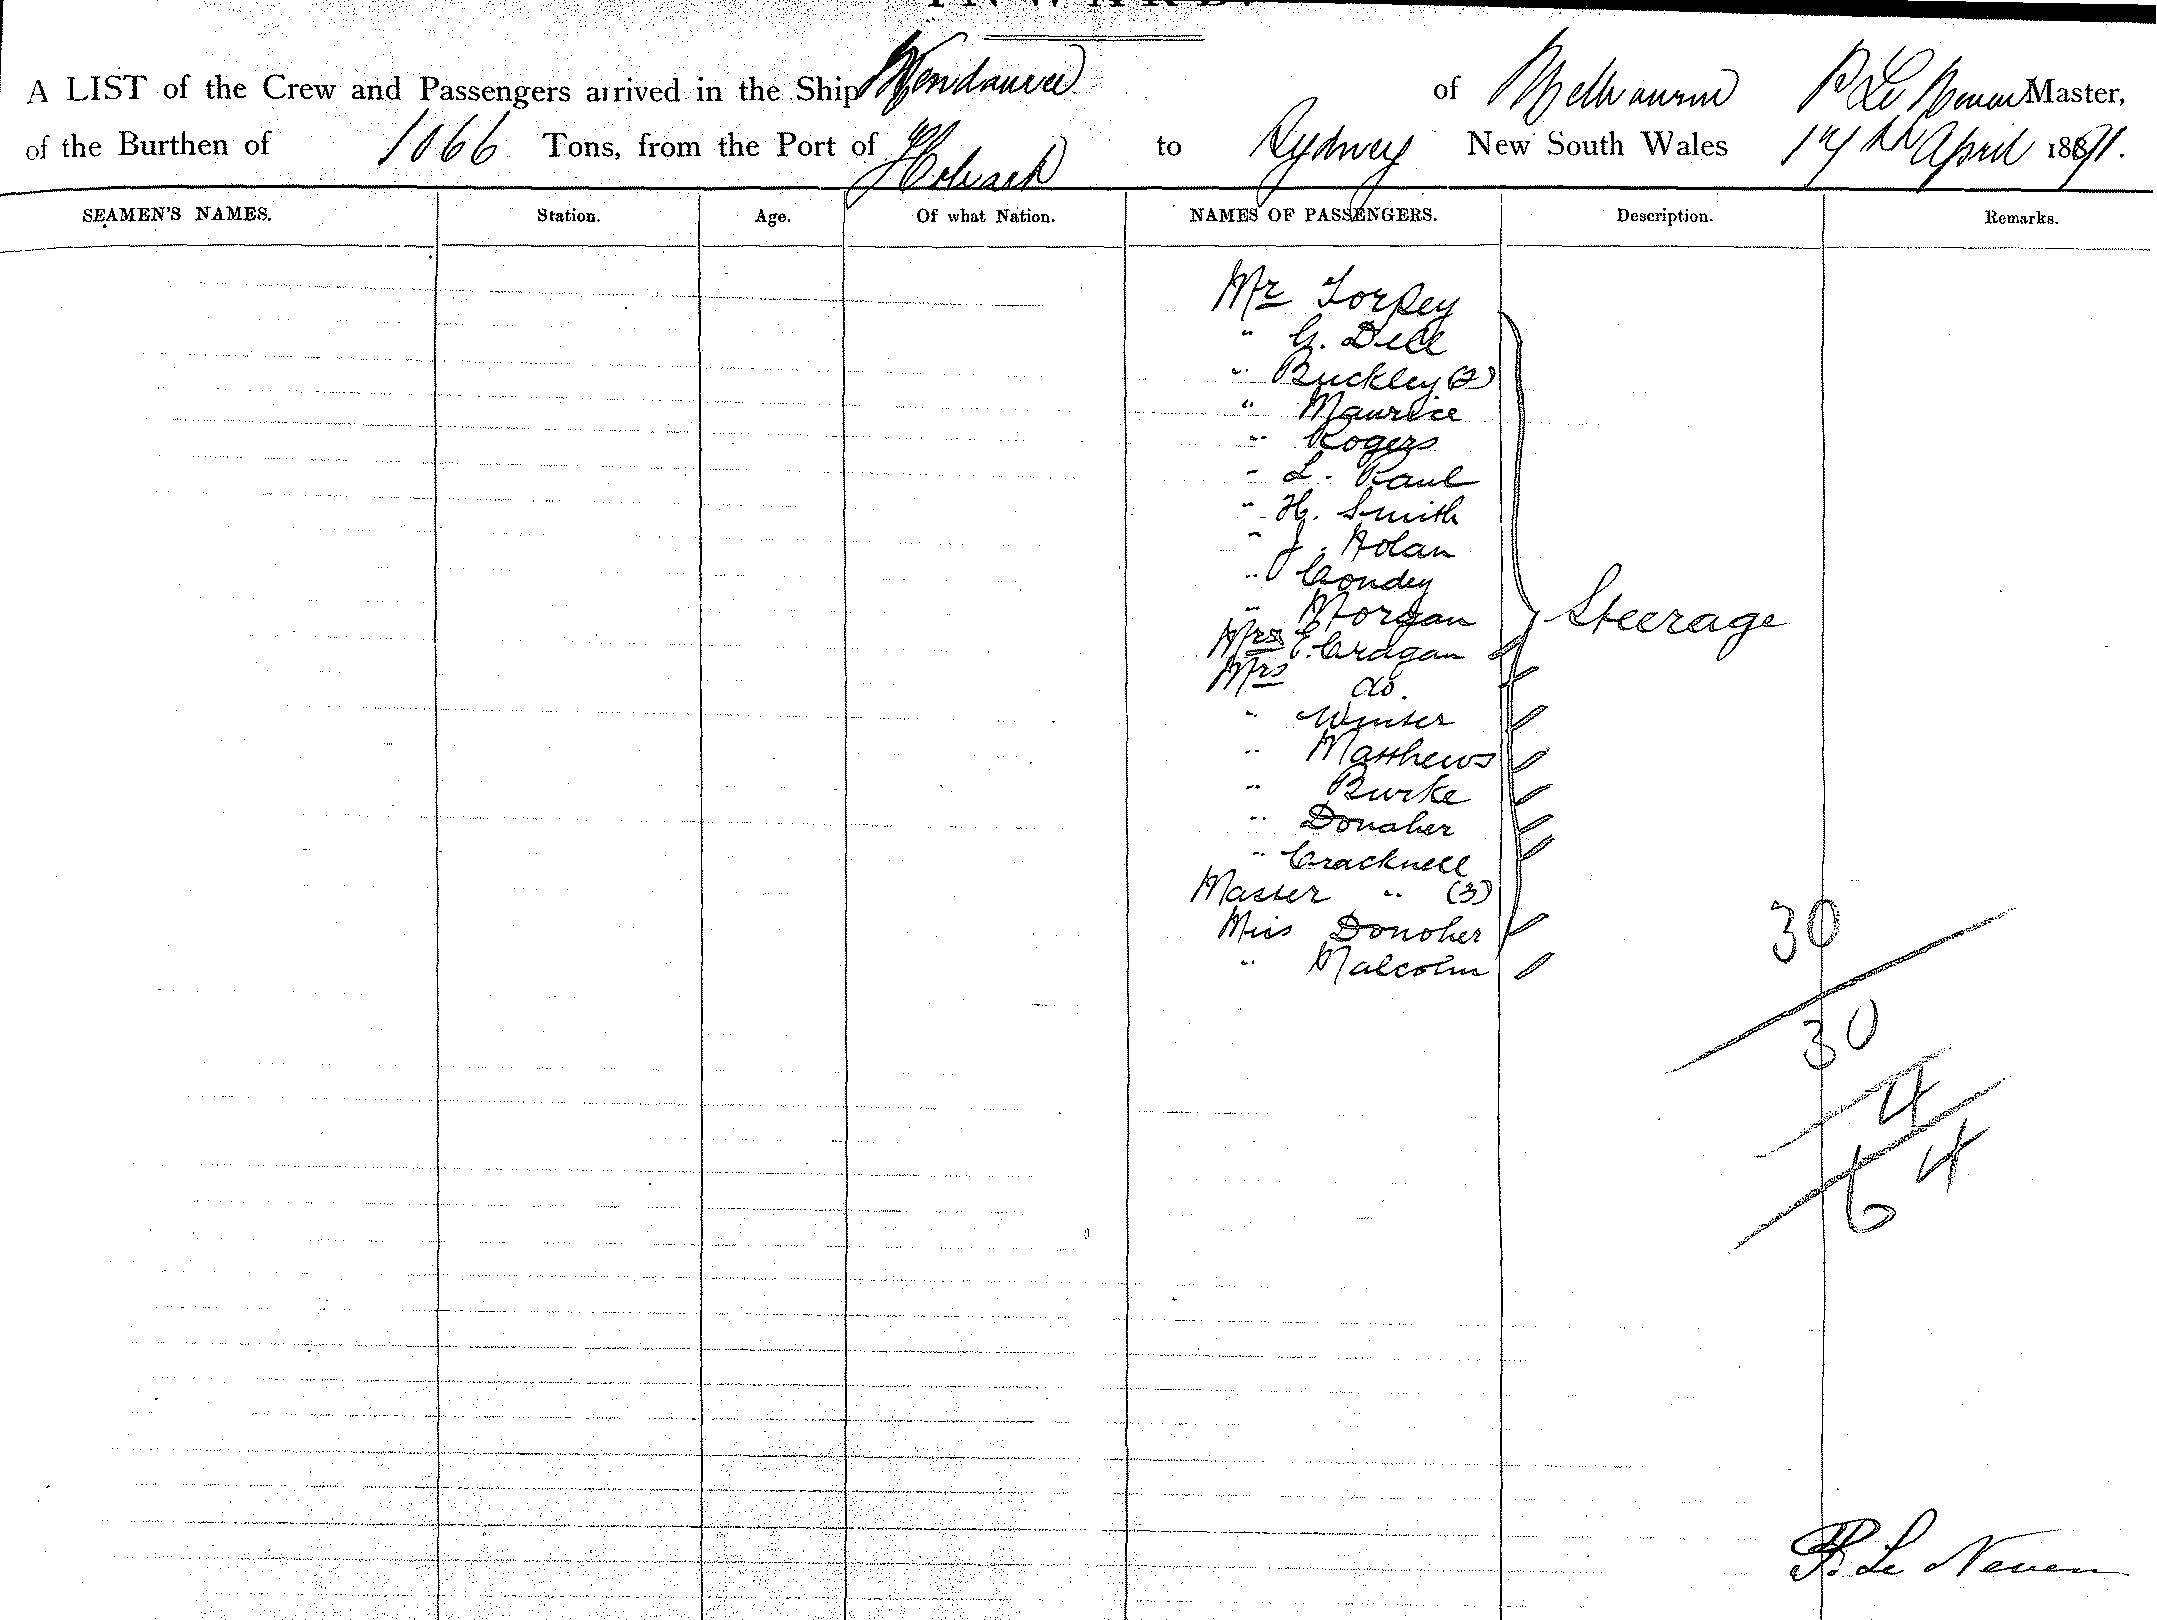 INWARD.
A LIST of the Crew and Passengers arrived in the Ship Wendouree of Melbourne P Le Neven Master,
of the Burthen of 1066 Tons, from the Port of Hobart to Sydney New South Wales 17th April 1891.
SEAMEN'S NAMES. Station. Age. Of what Nation. NAMES OF PASSENGERS. Description. Remarks.
Mr Torpey
" G. Dell
" Buckley (2)
" Maurice
" Rogers
" L. Paul
" H. Smith
" J. Nolan
" Condey
" Morgan
Steerage
Mrs E. Cragan
Mrs do.
" Winter
" Matthews
" Burke
" Donaher
" Cracknell
Master " (3)
Miss Donoher
" Malcolm
30
30
4
64
P. Le Neven